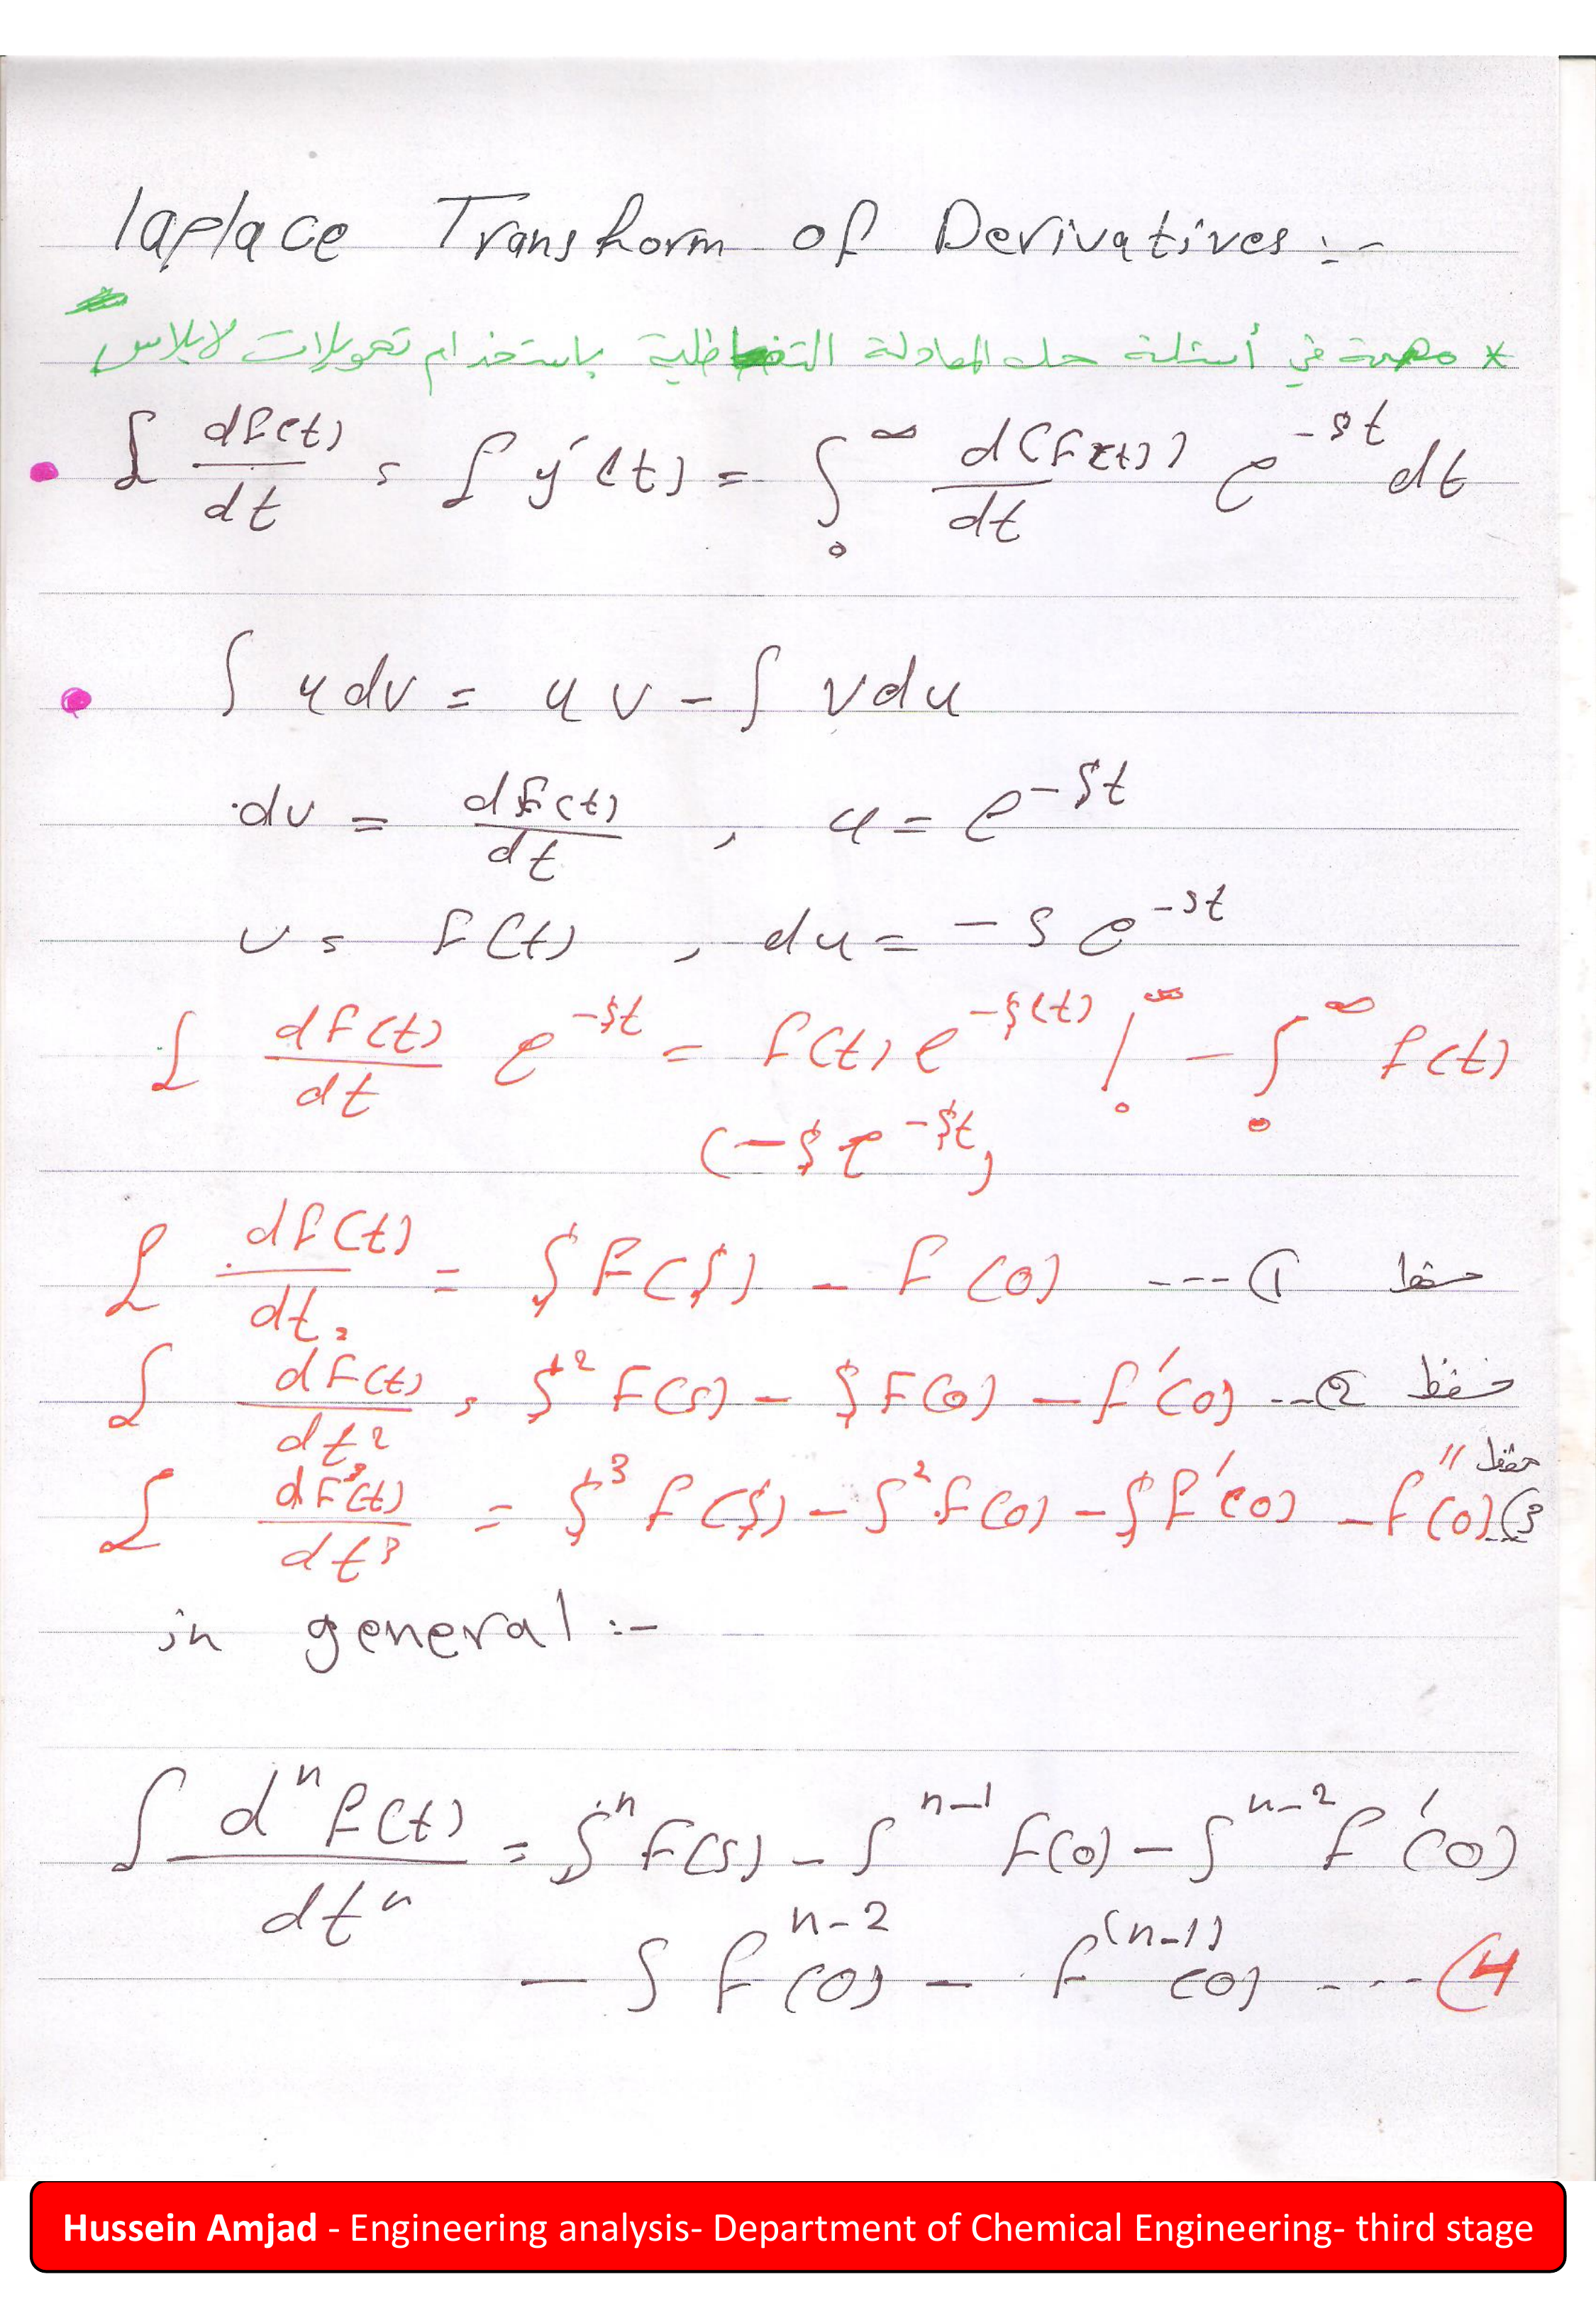 laplace Transform of Derivatives :-
* مهمة في أسئلة حل المعادلة التفاظلية باستخدام تحويلات لابلاس
£ df(t)/dt = £ y′(t) = ∫₀^∞ d(f(t))/dt e^-st dt
∫ u dv = u v - ∫ v du
dv = df(t)/dt , u = e^-st
v = f(t) , du = - s e^-st
£ df(t)/dt e^-st = f(t) e^-s(t) |₀^∞ - ∫₀^∞ f(t)
(-s e^-st)
£ df(t)/dt = s F(s) - f(0) --- (1 حفظ
£ d²f(t)/dt² = s² F(s) - s F(0) - f′(0) --- (2 حفظ
£ d³F(t)/dt³ = s³ f(s) - s² f(0) - s f′(0) - f″(0) --- (3 حفظ
in general :-
£ dⁿ f(t)/dtⁿ = sⁿ F(s) - s^n-1 f(0) - s^n-2 f′(0)
- s f^n-2 (0) - f^(n-1) (0) ---- (4
Hussein Amjad - Engineering analysis- Department of Chemical Engineering- third stage